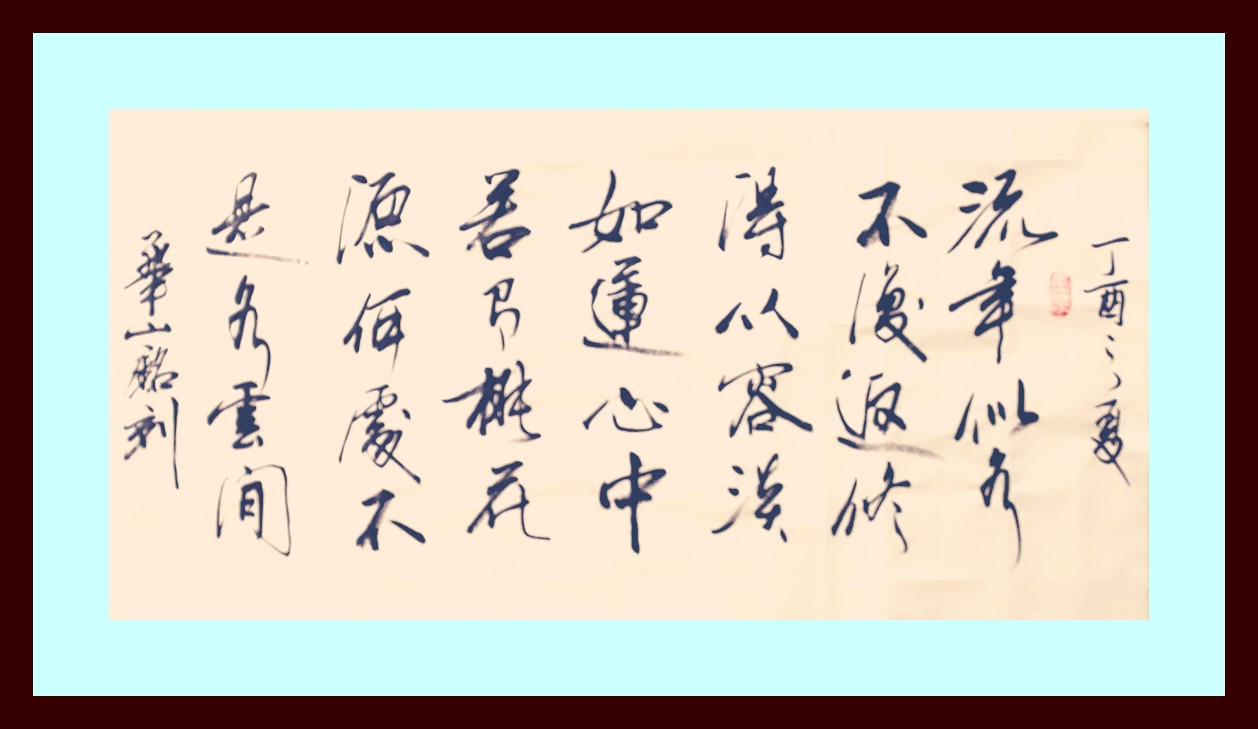 丁酉之夏
流年似水
不復返修
得从容淡
如蓮心中
若有桃花
源何處不
是水雲間
華山銘利